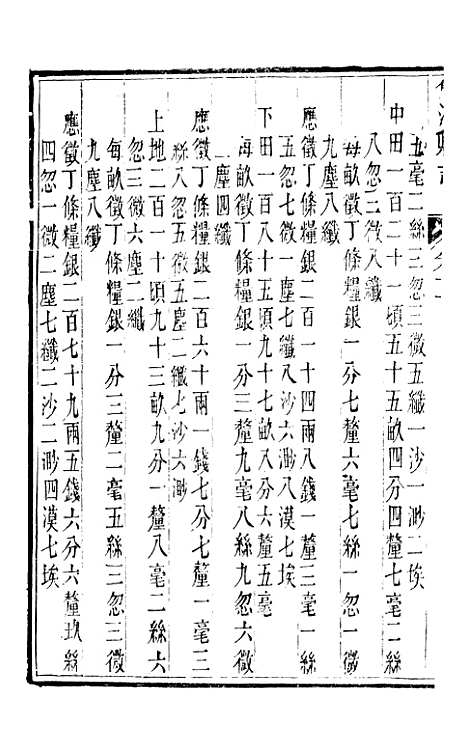 五毫二絲三忽三微五纖一沙一渺二埃
中田一百二十一頃五十五畝四分四釐七毫二絲
八忽三微八纖
每畝徵丁條糧銀一分七釐六毫七絲一忽一微
九塵八纖
應徵丁條糧銀二百一十四兩八錢一釐三毫一絲
五忽七微一塵七纖八沙六渺八漠七埃
下田一百八十一頃九十七畝八分六釐五毫
每畝徵丁條糧銀一分四釐九毫八絲九忽六微
一塵四纖
應徵丁條糧銀二百六十兩一錢七分七釐一毫三
絲八忽五微五塵二纖七沙六渺
上地二百一十一頃九十三畝九分一釐八毫二絲六
忽三微六塵二纖
每畝徵丁條糧銀一分三釐二毫五絲三忽三微
九塵八纖
應徵丁條糧銀二百七十九兩五錢六分六釐玖絲
四忽一微二塵七纖二沙二渺四漠七埃